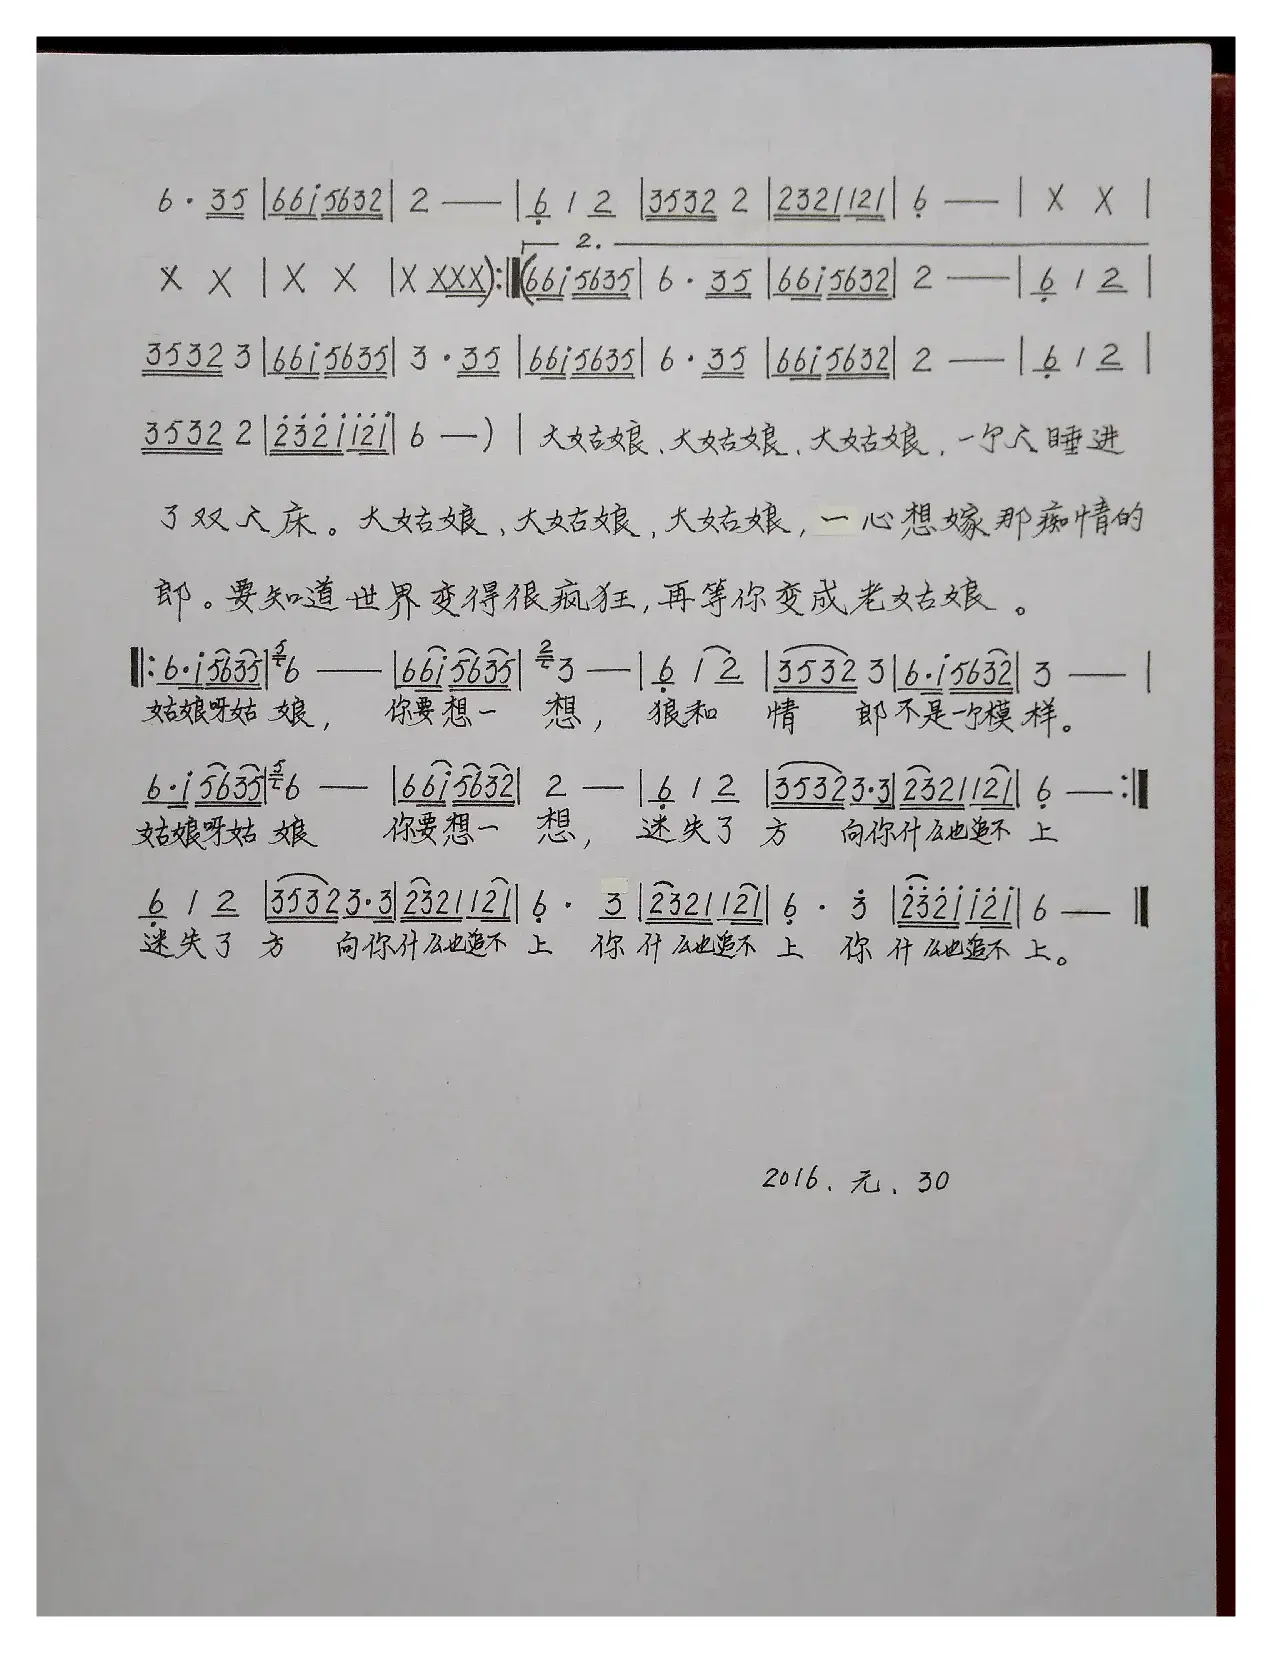 6 · 35 | 66i 5632 | 2 — | 6 1 2 | 3532 2 | 2321 121 | 6 — | X X |
2.
X X | X X | X XXX) :‖ (66i 5635 | 6 · 35 | 66i 5632 | 2 — | 6 1 2 |
3532 3 | 66i 5635 | 3 · 35 | 66i 5635 | 6 · 35 | 66i 5632 | 2 — | 6 1 2 |
3532 2 | 2321 121 | 6 —) | 大姑娘、大姑娘、大姑娘，一个人睡进
了双人床。大姑娘、大姑娘，大姑娘，一心想嫁那痴情的
郎。要知道世界变得很疯狂，再等你变成老姑娘。
‖: 6·i 5635 | 5 6 — | 66i 5635 | 2 3 — | 6 1 2 | 3532 3 | 6·i 5632 | 3 — |
姑娘呀姑 娘， 你要想一 想， 狼和 情 郎不是一个模样。
6·i 5635 | 5 6 — | 66i 5632 | 2 — | 6 1 2 | 3532 3·3 | 2321 121 | 6 — :‖
姑娘呀姑 娘 你要想一 想， 迷失了 方 向你什么也追不 上
6 1 2 | 3532 3·3 | 2321 121 | 6 · 3 | 2321 121 | 6 · 3 | 2321 121 | 6 — ‖
迷失了 方 向你什么也追不 上 你 什么也追不 上 你 什么也追不 上。
2016、元、30